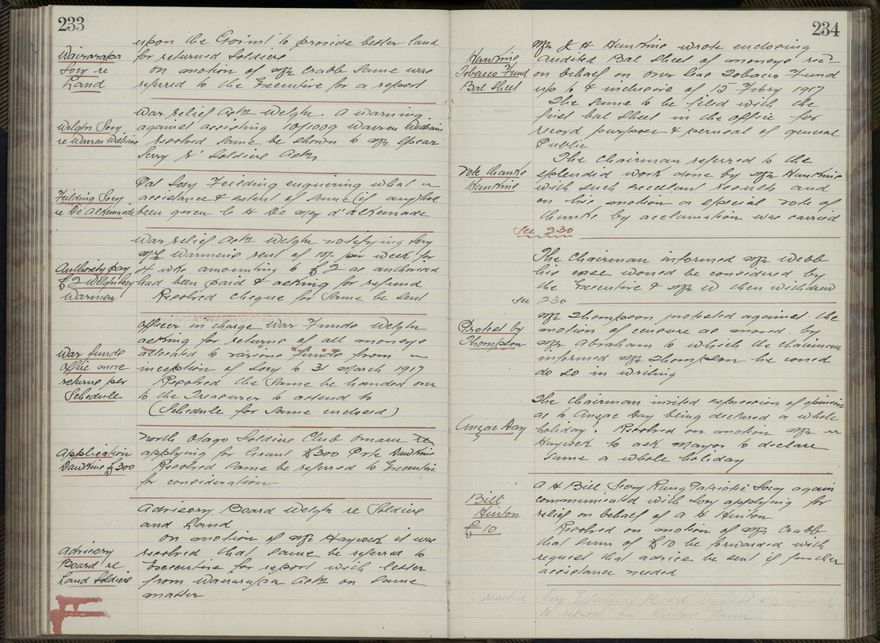 233
upon the Govmt to provide better land
Wairarapa
Socy re
Land
for returned Soldiers
On motion of Mr Crabb same was
referred to the Executive for a report
Welgtn Socy
re Warren
War relief Assn Welgtn. A warning
against assisting 10/1009 Warren
Resolved same be shown to Mr Spear
Secy R Soldiers Assn
Feilding Socy
re De Alkemade
Pat Socy Feilding enquiring what
assistance & extent of same (if any) had
been given to H De d'Alkemade
Authority pay
£2 Welgtn Socy
Warmen
War relief Assn Welgtn notifying Socy
rent of 10/- per week for
amounting to £2 as authorised
had been paid & asking for refund
Resolved cheque for same be sent
War funds
office
returns per
Schedule
Officer in charge War Funds Welgtn
asking for returns of all moneys
allocated to various funds from
inception of Socy to 31 March 1917
Resolved the same be handed over
to the Treasurer to attend to
(Schedule for same enclosed)
Application
£300
North Otago Soldiers Club Oamaru
applying for Grant £300
Resolved same be referred to Executive
for consideration
Advisory
Board re
Land Soldiers
Advisory Board Welgtn re Soldiers
and Land
On motion of Mr Haycock it was
resolved that same be referred to
Executive for report with letter
from Wairarapa Assn on same
matter
234
Hawkins
Tobacco Fund
Bal Sheet
Mr J H Hawkins wrote enclosing
Audited Bal Sheet of moneys recd
on behalf of Over Sea Tobacco Fund
up to & inclusive of 15 Febry 1917
The same to be filed with the
first bal Sheet in the office for
record purpose & perusal of general
Public
Vote thanks
Hawkins
The Chairman referred to the
splendid work done by Mr Hawkins
with such excellent results and
on his motion a special vote of
thanks by acclamation was carried
See 230
The Chairman informed Mr Webb
his case would be considered by
the Executive & Mr W then withdrew
See 230
Protest by
Thompson
Mr Thompson protested against the
motion of censure as moved by
Mr Abraham to which the chairman
informed Mr Thompson he could
do so in writing
Anzac Day
The Chairman invited expression of opinion
as to Anzac Day being declared a whole
holiday. Resolved on motion Mr
Haycock to ask Mayor to declare
same a whole holiday
Bill
Hinton
£10
A H Bill Secy Rang Patriotic Socy again
communicated with Socy applying for
relief on behalf of A H Hinton
Resolved on motion of Mr Crabb
that sum of £10 be forwarded with
request that advice be sent if further
assistance needed
resolved